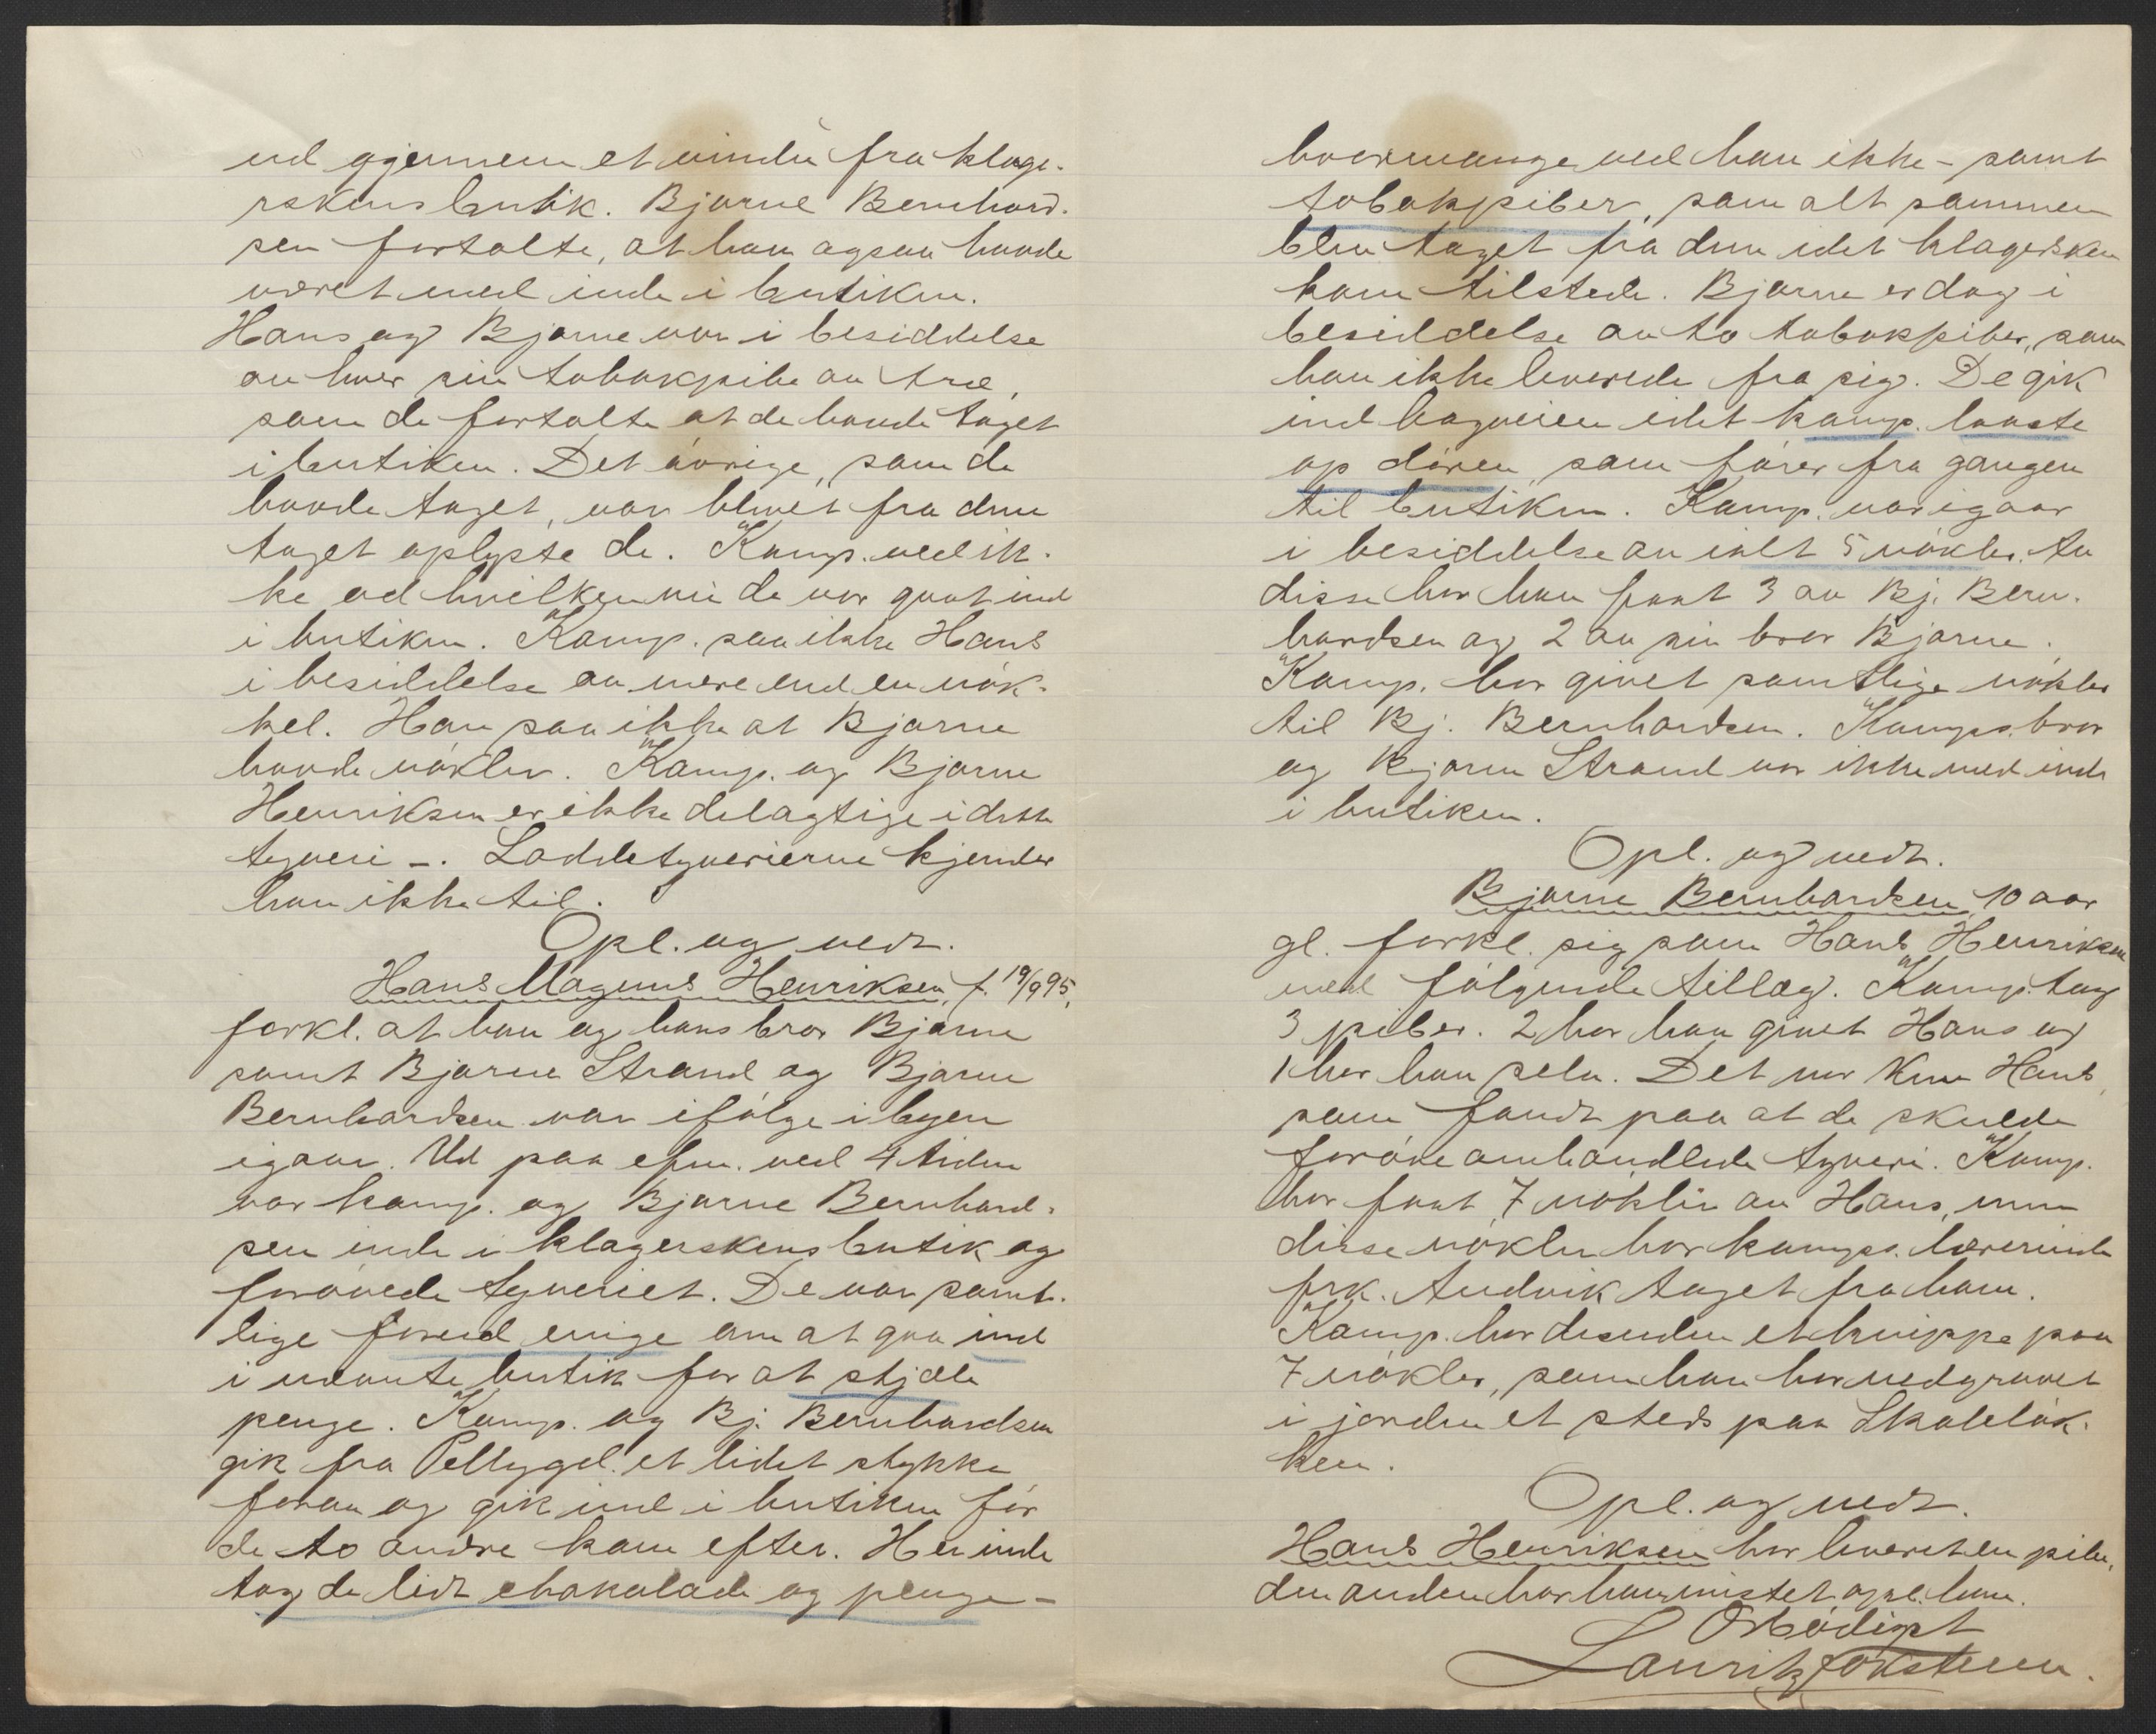 ud gjennem et vindu fra klage-
rskens butik. Bjarne Bernhard-
sen fortalte, at han ogsaa havde
været med inde i butiken.
Hans og Bjarne var i besiddelse
av hver sin tobakpibe av træ,
som de fortalte at de havde taget
i butiken. Det øvrige, som de
havde taget, var blevet fra dem
taget oplyste de. Komp. ved ik-
ke ad hvilken vei de var gaat ind
i butiken. Komp. saa ikke Hans
i besiddelse av mere end en nøk-
kel. Han saa ikke at Bjarne
havde nøkler. Komp. og Bjarne
Henriksen er ikke delagtige i dette
tyveri -. Loddetyverierne kjender
han ikke til.
Opl. og vedt.
Hans Magnus Henriksen, f. 19/9 95,
forkl. at han og hans bror Bjarne
samt Bjarne Strand og Bjarne
Bernhardsen var ifølge i byen
igaar. Ud paa efm. ved 4 tiden
var komp. og Bjarne Bernhard-
sen inde i klagerskens butik og
forøvede tyveriet. De var samt-
lige forud enige om at gaa ind
i nævnte butik for at stjæle
penge. Komp. og Bj. Bernhardsen
gik fra Peltygel. et lidet stykke
foran og gik ind i butiken før
de to andre kom efter. Her inde
tog de lidt chokolade og penge -
hvormange ved han ikke - samt
tobakpiber, som alt sammen
blev taget fra dem idet klagersken
kom tilstede. Bjarne er dog i
besiddelse av to tobakpiber, som
han ikke leverede fra sig. De gik
ind bagveien idet komp. laaste
op døren som fører fra gangen
til butiken. Komp. var igaar
i besiddelse av ialt 5 nøkler. Av
disse har han faat 3 av Bj. Bern-
hardsen og 2 av sin bror Bjarne.
Komp. har givet samtlige nøkler
til Bj. Bernhardsen. Komps. bror
og Bjarne Strand var ikke med inde
i butiken.
Opl. og vedt.
Bjarne Bernhardsen, 10 aar
gl. forkl. sig som Hans Henriksen
med følgende tillæg. Komp. tog
3 piber. 2 har han givet Hans og
1 har han selv. Det var kun Hans,
som fandt paa at de skulde
forøve omhandlede tyveri. Komp.
har faat 7 nøkler av Hans, men
disse nøkler har komps. lærerinde
frk. Andvik taget fra ham.
Komp. har desuden et knippe paa
7 nøkler, som han har nedgravet
i jorden et steds paa Skoleløk-
ken.
Opl. og vedt.
Hans Henriksen har leveret en pibe,
den anden har han mistet opl. han.
Ærbødigst
Lauritz Torstensen.